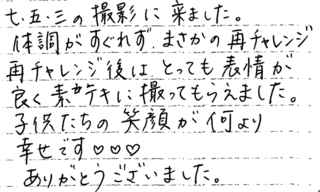 七・五・三の撮影に来ました。
体調がすぐれず、まさかの再チャレンジ
再チャレンジ後は、とっても表情が
良く素敵テキに撮ってもらえました。
子供たちの笑顔が何より
幸せです♡♡♡
ありがとうございました。